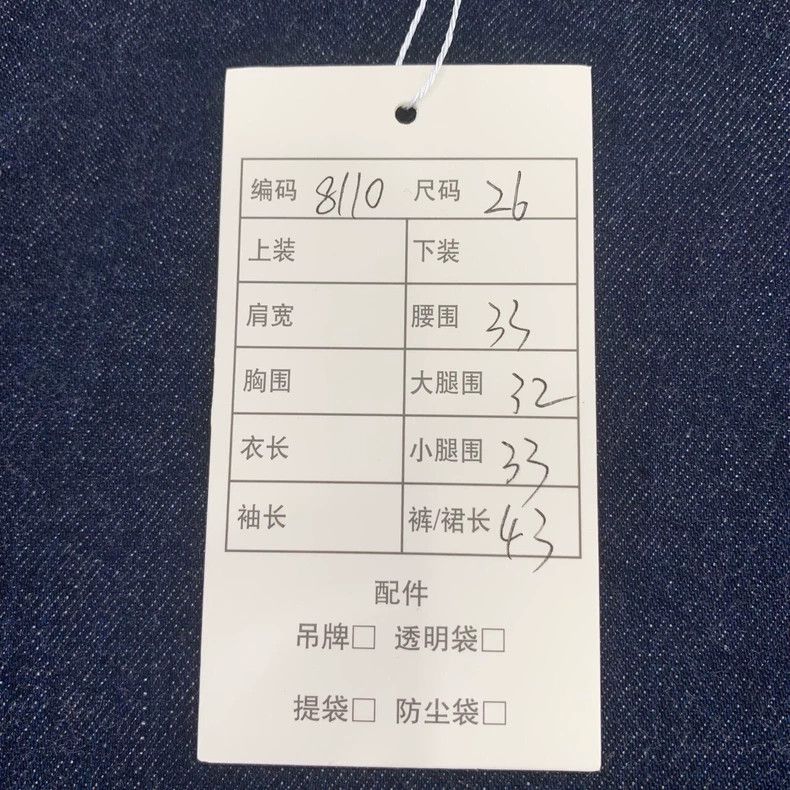 编码 8110 尺码 26
上装 下装
肩宽 腰围 33
胸围 大腿围 32
衣长 小腿围 33
袖长 裤/裙长 43
配件
吊牌□ 透明袋□
提袋□ 防尘袋□